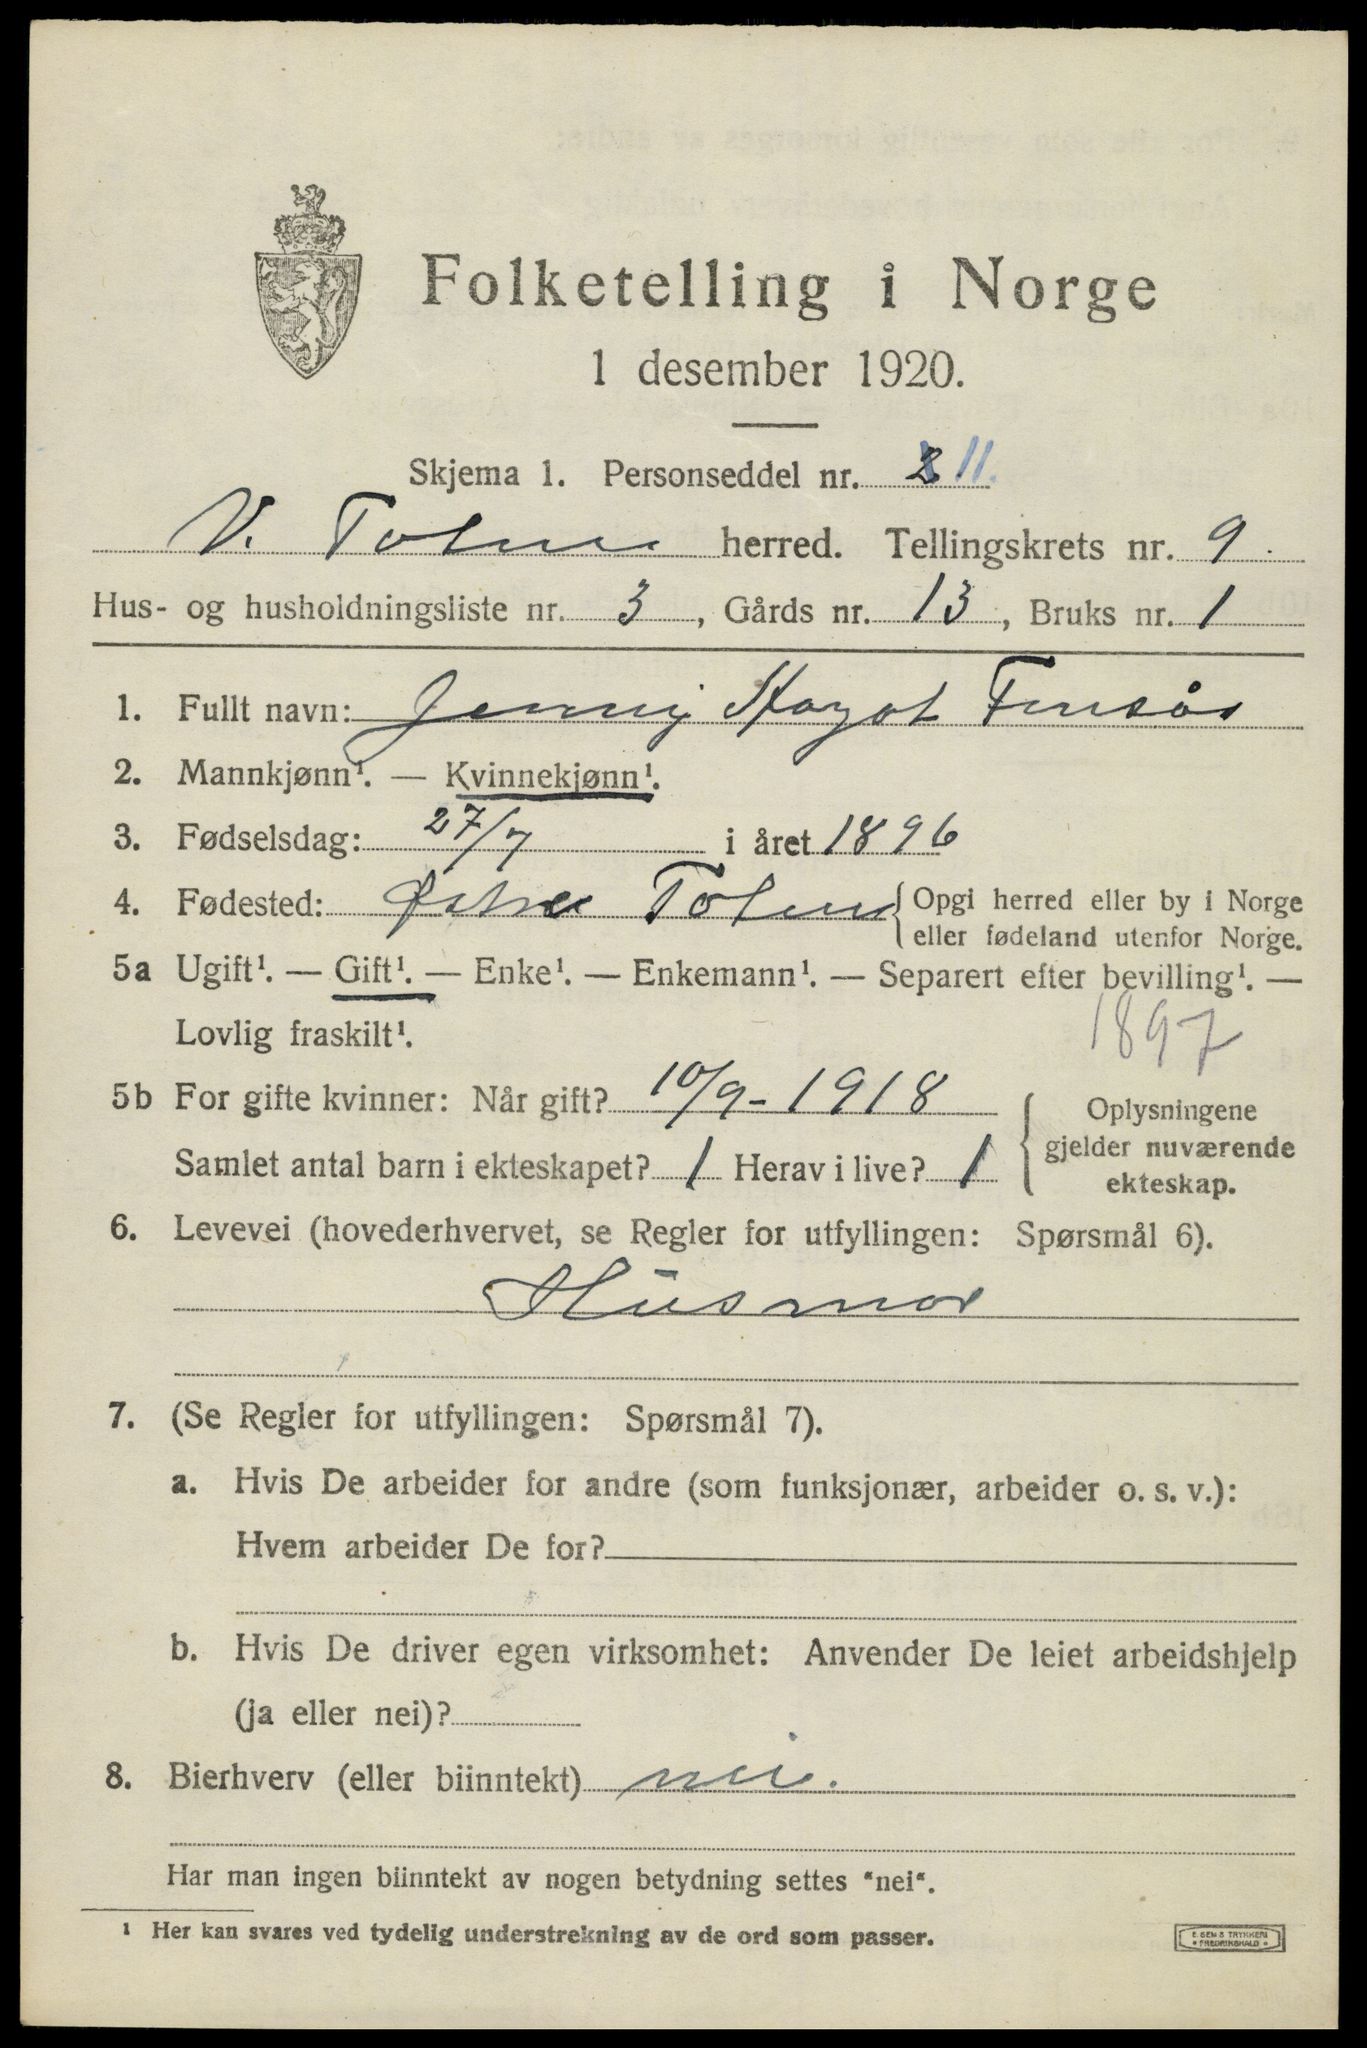 Folketelling i Norge
1 desember 1920.
Skjema 1. Personseddel nr. 11.
V. Toten herred. Tellingskrets nr. 9.
Hus- og husholdningsliste nr. 3, Gårds nr. 13, Bruks nr. 1
1. Fullt navn: Jenny
2. Mannkjønn¹. — Kvinnekjønn¹.
3. Fødselsdag: 27/7 i året 1896
4. Fødested: Østre Toten { Opgi herred eller by i Norge
eller fødeland utenfor Norge.
5a Ugift¹. — Gift¹. — Enke¹. — Enkemann¹. — Separert efter bevilling¹. —
Lovlig fraskilt¹.
1897
5b For gifte kvinner: Når gift? 10/9-1918
Samlet antal barn i ekteskapet? 1 Herav i live? 1
{ Oplysningene
gjelder nuværende
ekteskap.
6. Levevei (hovederhvervet, se Regler for utfyllingen: Spørsmål 6).
Husmor
7. (Se Regler for utfyllingen: Spørsmål 7).
a. Hvis De arbeider for andre (som funksjonær, arbeider o. s. v.):
Hvem arbeider De for?
b. Hvis De driver egen virksomhet: Anvender De leiet arbeidshjelp
(ja eller nei)?
8. Bierhverv (eller biinntekt) nei.
Har man ingen biinntekt av nogen betydning settes "nei".
¹ Her kan svares ved tydelig understrekning av de ord som passer.
E. SEM'S TRYKKERI
• FREDRIKSHALD •